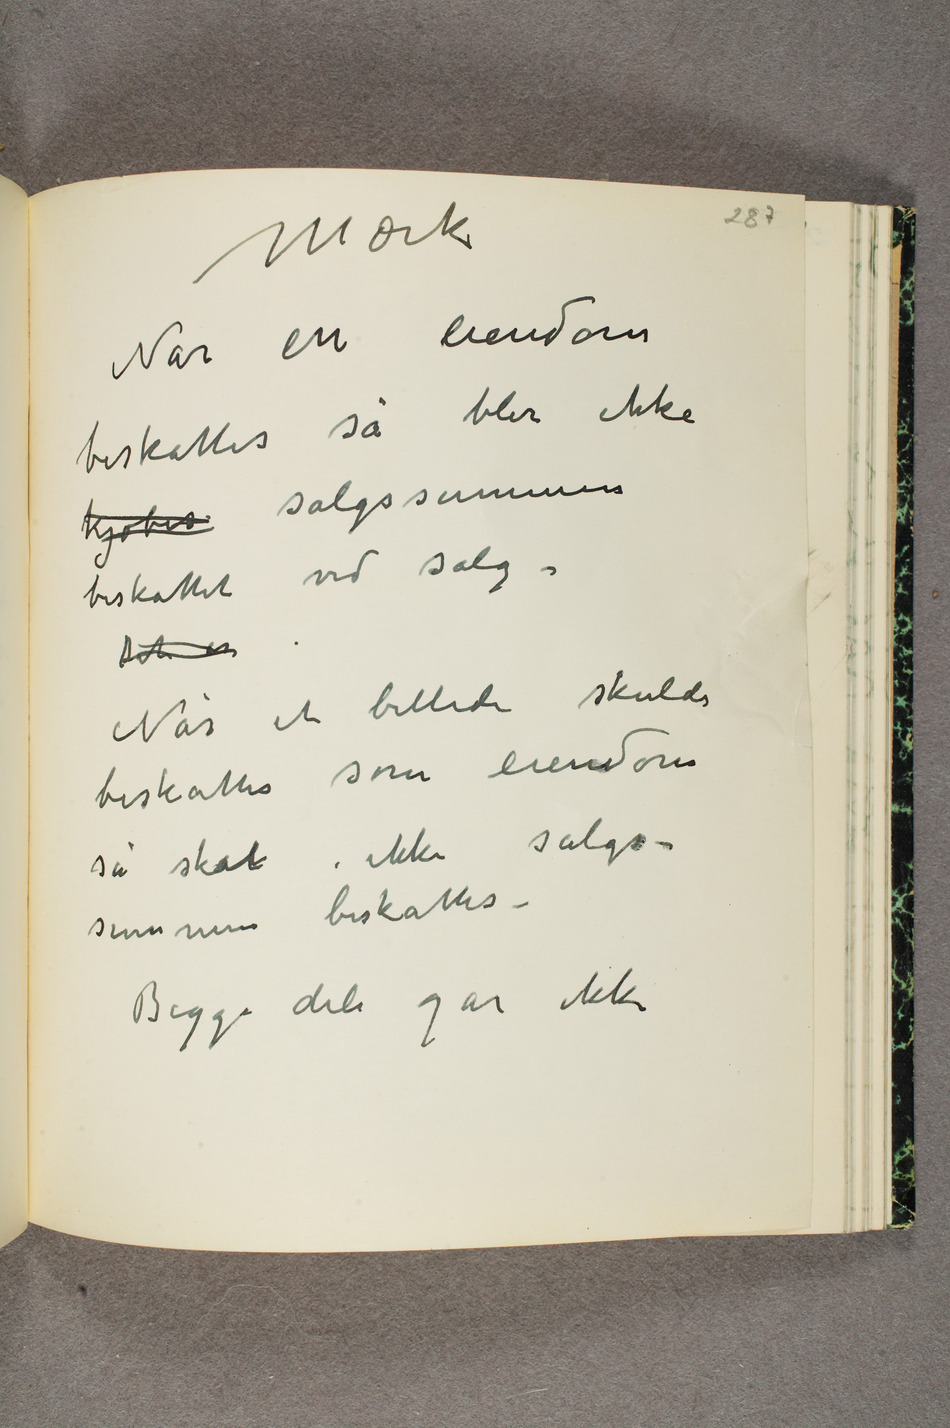 287
Mærk
Når en eiendom
beskattes så blir ikke
kjøbes salgssummen
beskattet ved salg –
Det er
Når et billede skulde
beskattes som eiendom
så skal ikke salgs-
summen beskattes –
Begge dele gar ikke